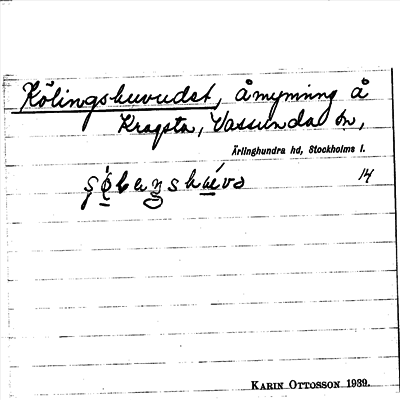 Kölingshuvudet, åmynning å
Kragsta, Vassunda sn,
Ärlinghundra hd, Stockholms l.
14
KARIN OTTOSSON 1939.